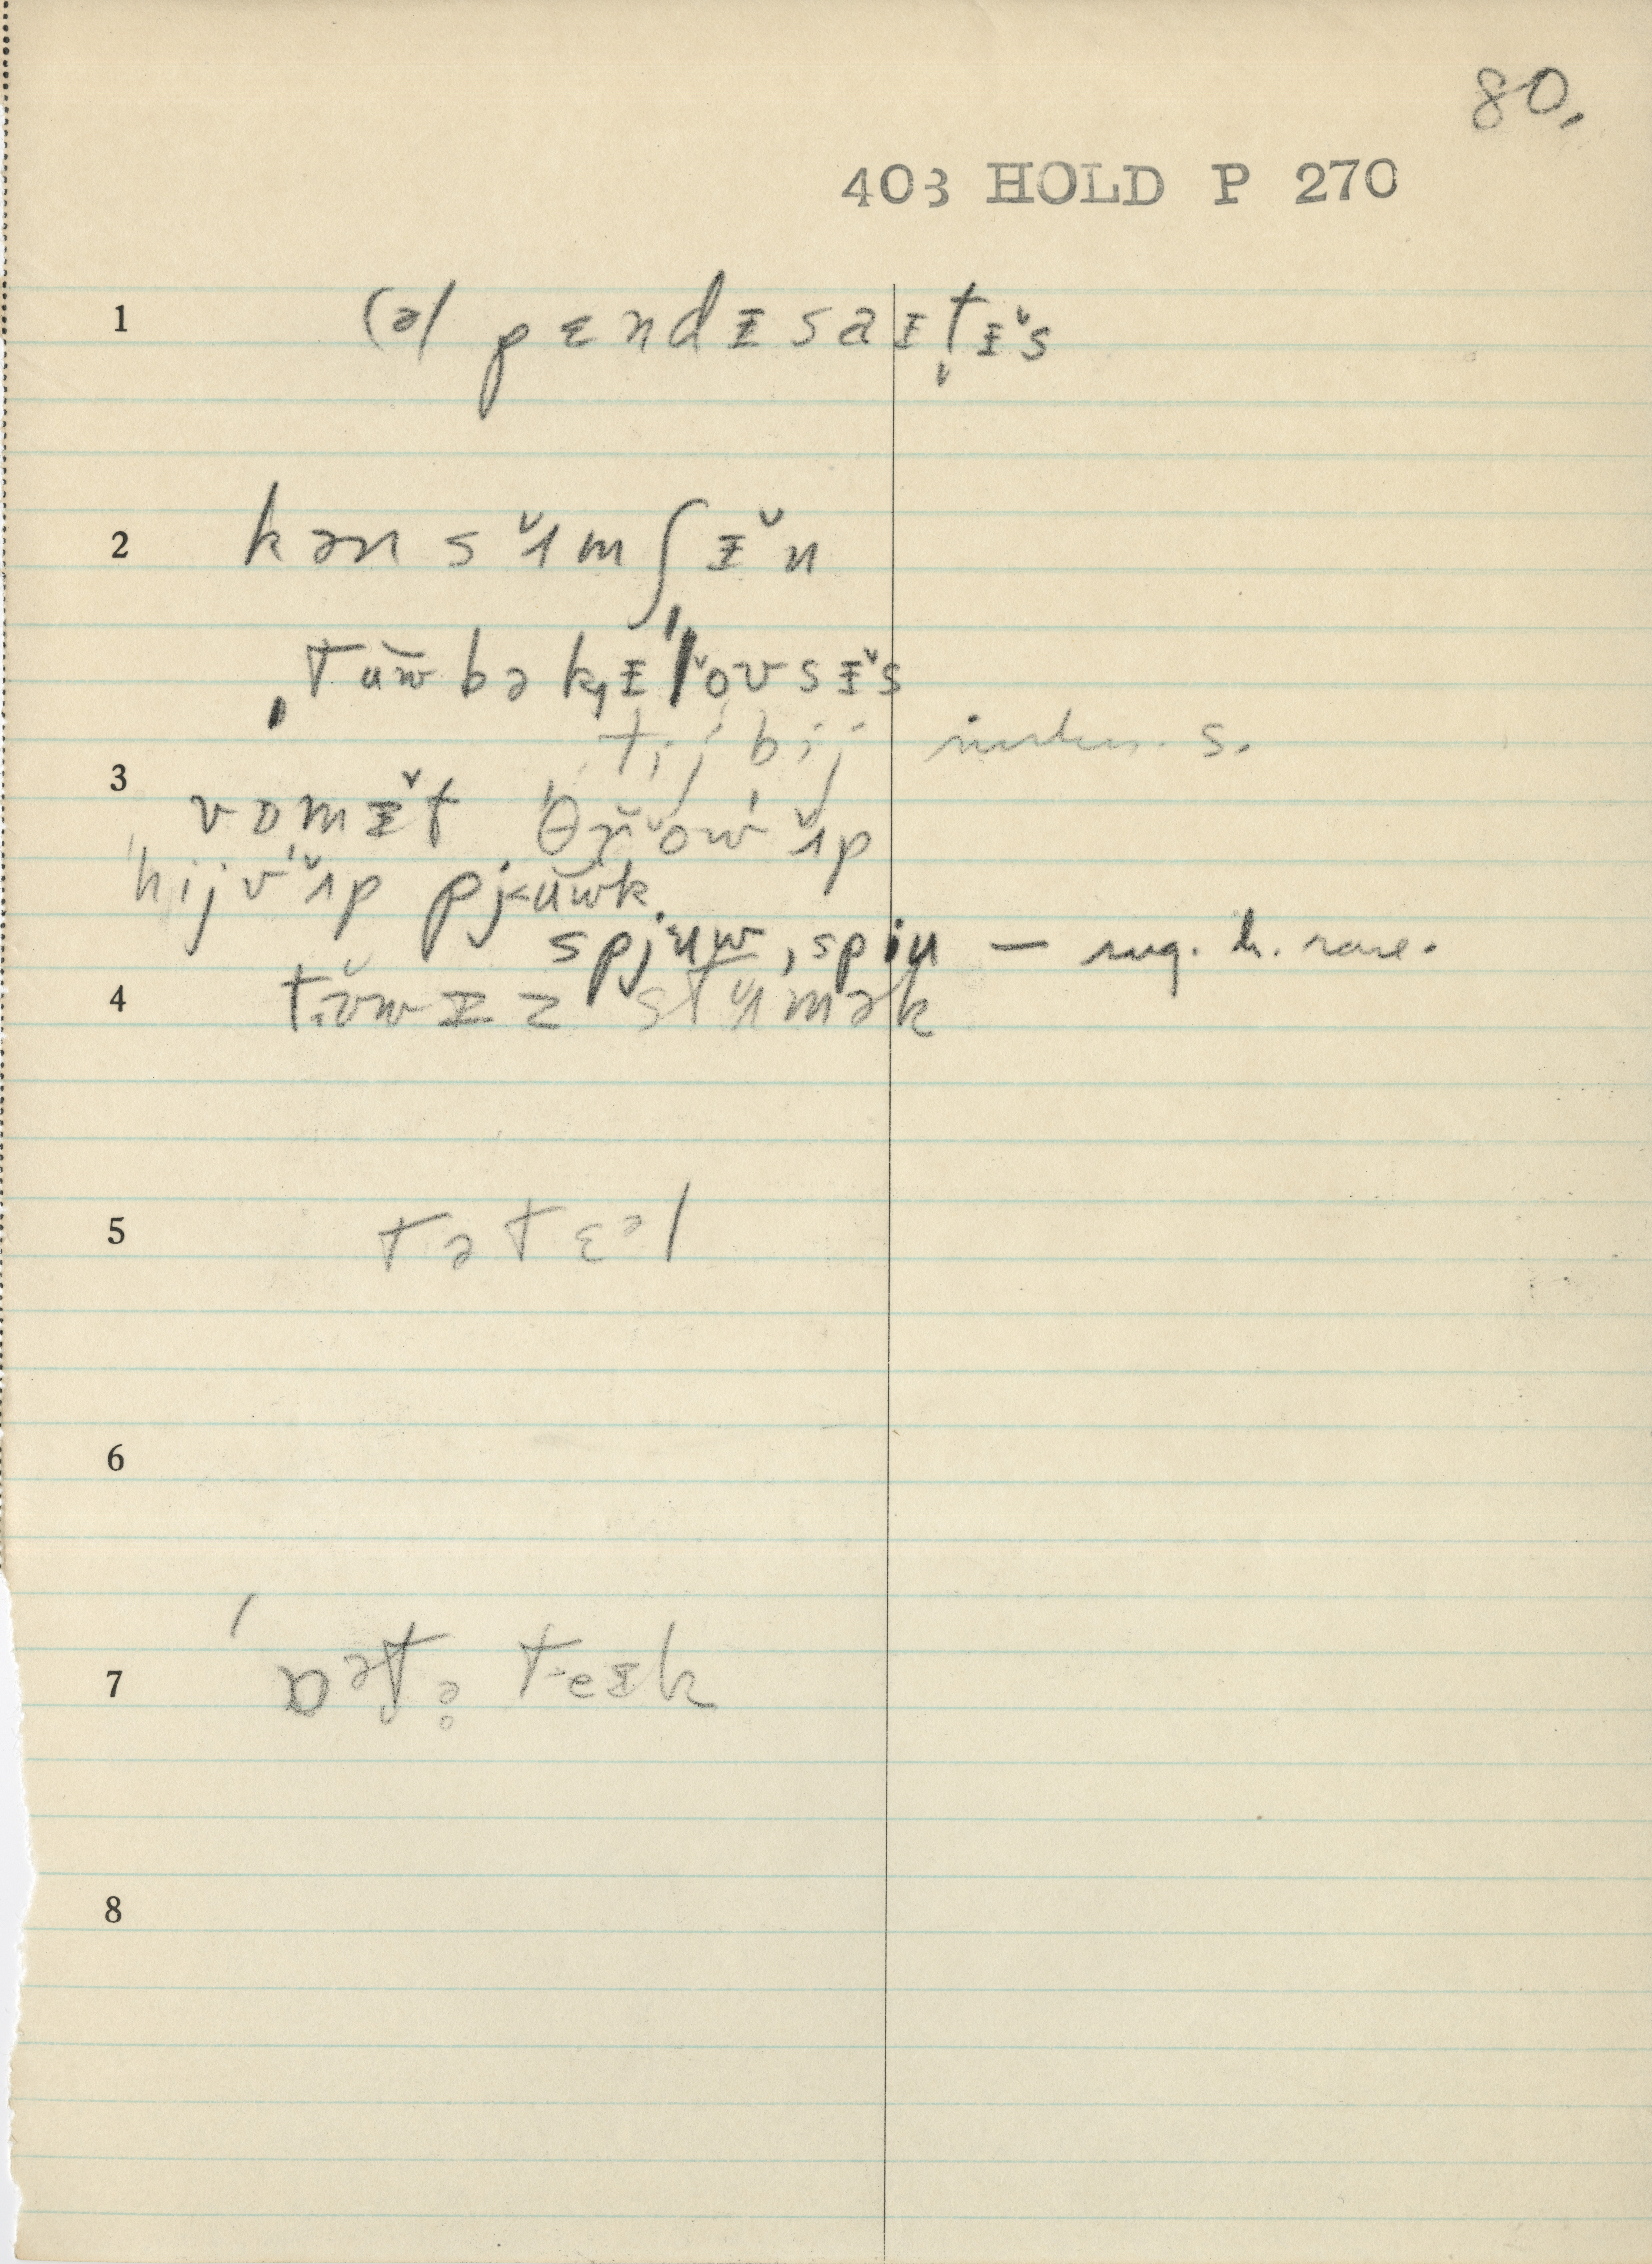 80.
403 HOLD P 270
1 (ə) pɛndɪsaɪt̬ɪ̌s
2 kən s ʌ̌m ʃ ɪ̌ n
ˌtŭw bə kˌɪˈlˇoʊsɪ̌s
ti̜j bij
3 vɒmɪ̌t ˈθrˇowˈʌ̌p
ˈhijvˈʌ̌p pj˂ŭwk
spjˈuw, spiu — sug. h. rare.
4 t.ʊ̌wɪz stʌ̌mək
5 tətɛəl
6
7 ˈɒət̬ə̥ teɪk
8